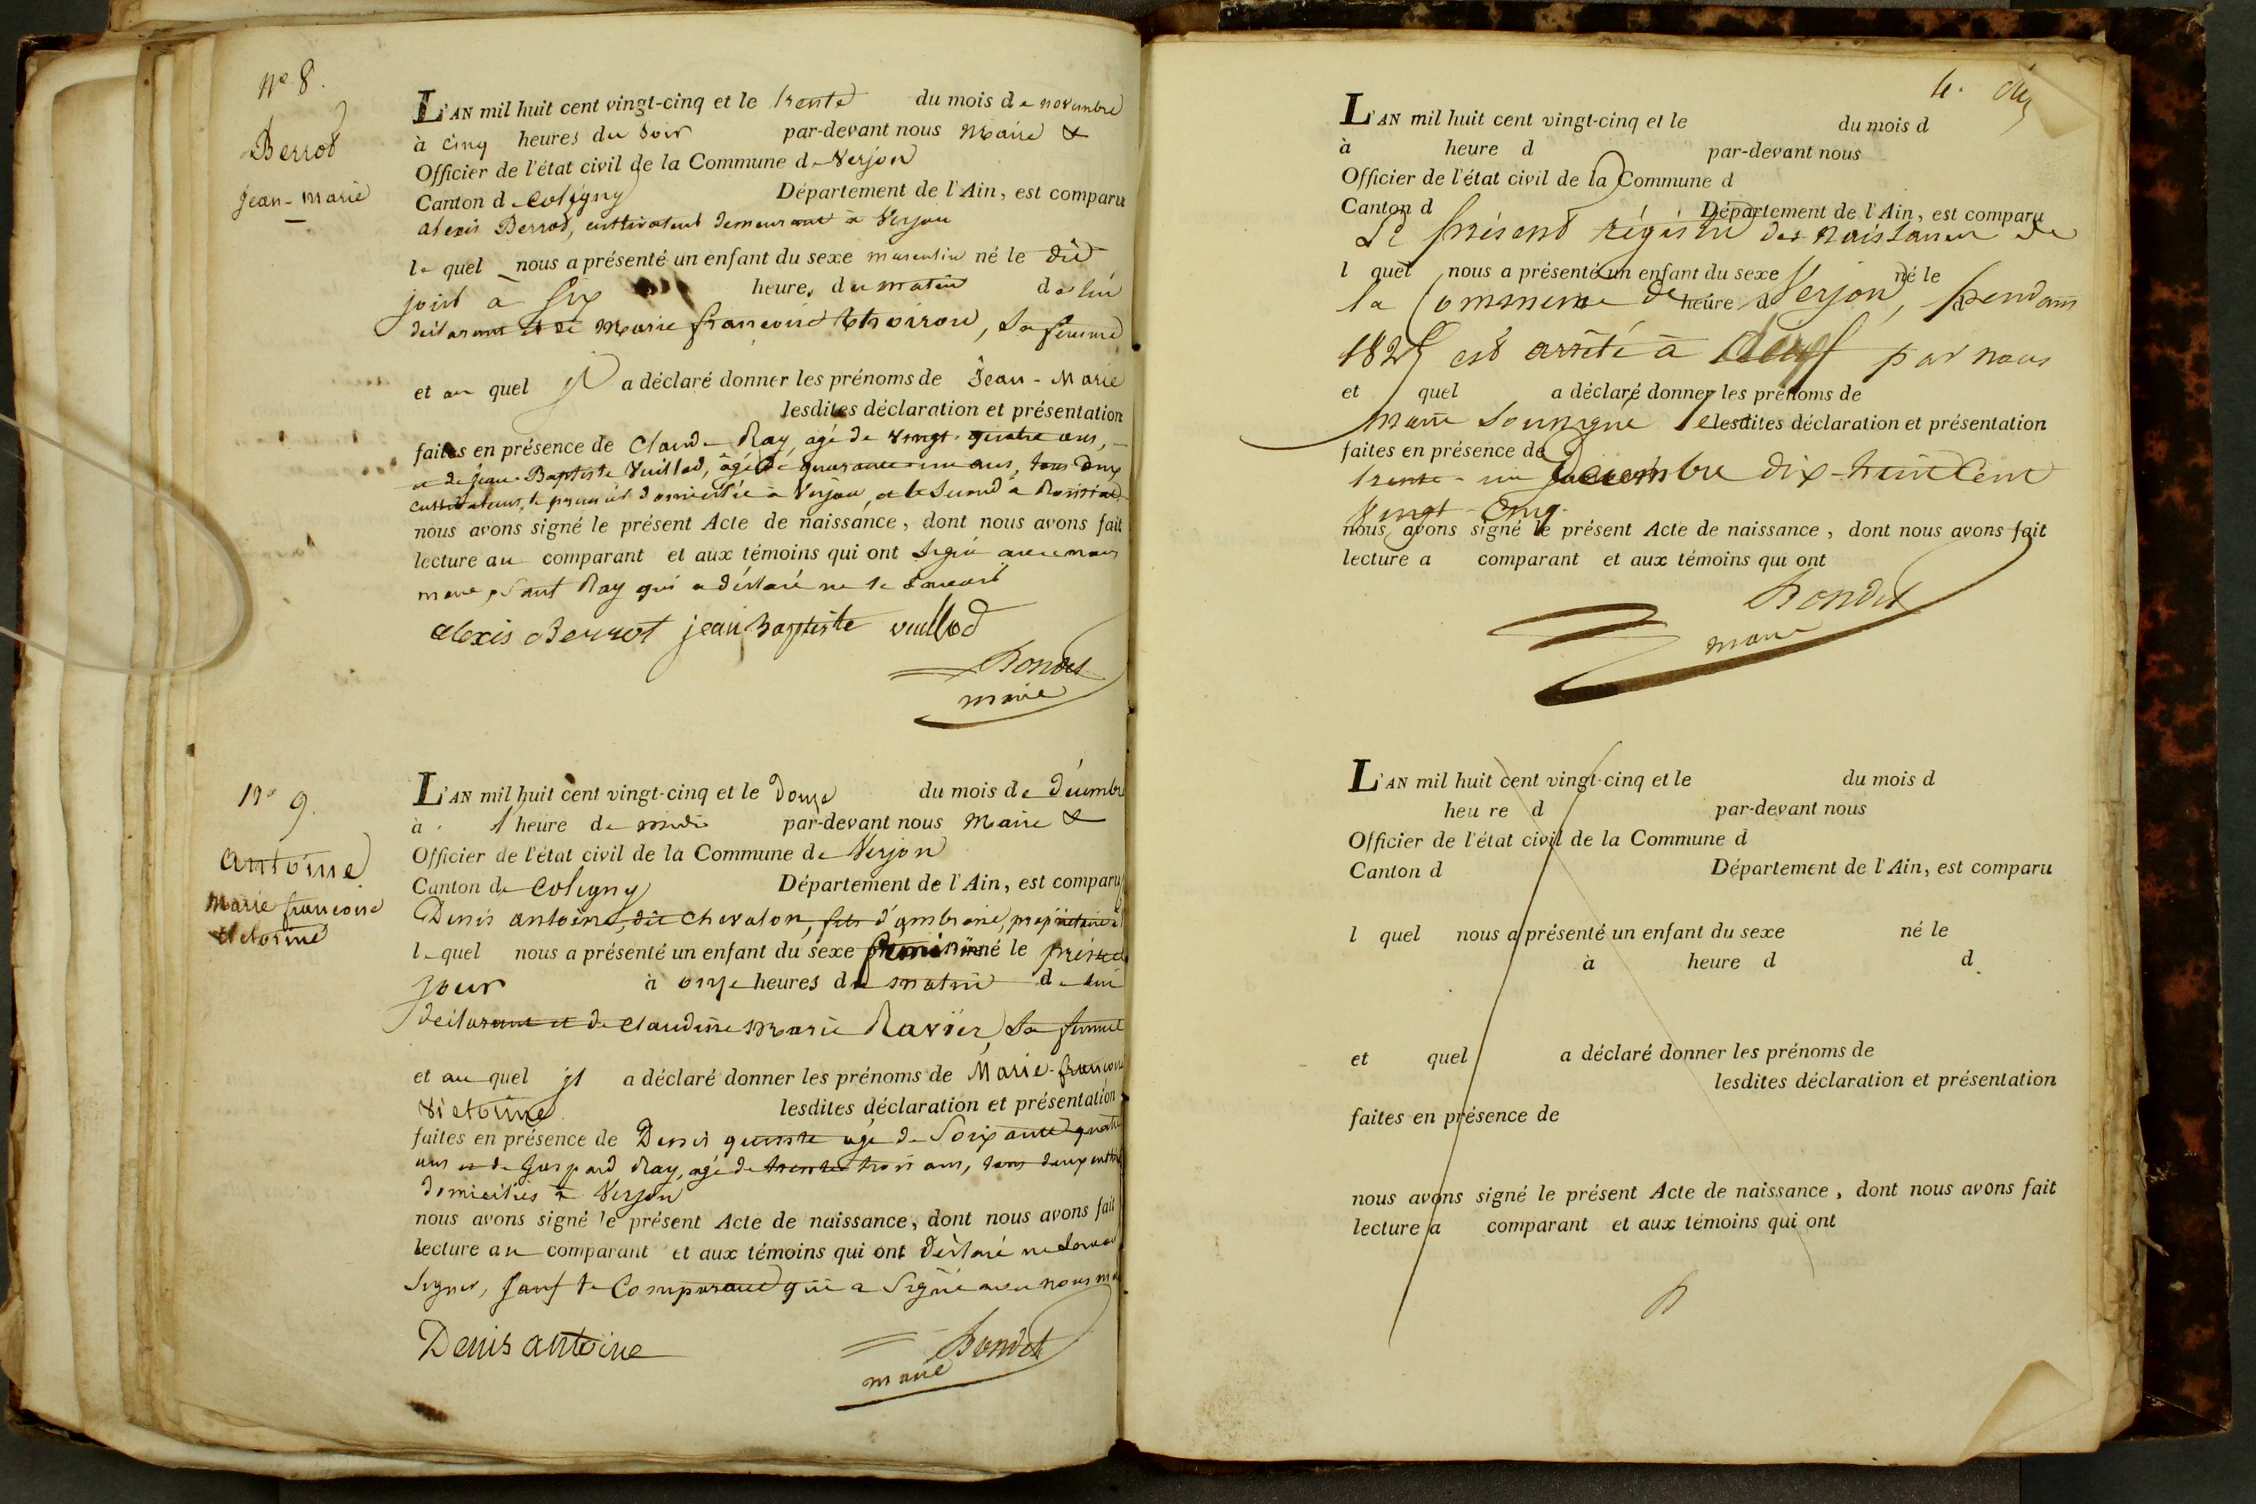 Nº 8.
Berrod
Jean-Marie
L'AN mil huit cent vingt-cinq et le trente du mois de novembre
à cinq heures du soir par-devant nous Maire &
Officier de l'état civil de la Commune de Verjon
Canton de Coligny Département de l'Ain, est comparu
alexis Berrod, cultivateur demeurant à Verjon
le quel nous a présenté un enfant du sexe masculin né le dit
jour à six heures du matin de lui
déclarant et de Marie françoise Thoiron, sa femme
et au quel il a déclaré donner les prénoms de Jean-Marie
lesdites déclaration et présentation
faites en présence de Claude Ray, agé de vingt-quatre ans,
et de Jean-Baptiste Vuillod, âgé de quarante-un ans, tous deux
cultivateurs, le premier domicilié à Verjon, et le second à
nous avons signé le présent Acte de naissance, dont nous avons fait
lecture au comparant et aux témoins qui ont signé avec nous
maire, sauf Ray qui a déclaré ne le savoir
alexis Berrot jean Baptiste vuillod
Rondet
maire
Nº 9.
Antoine
Marie françoise
Victorine
L'AN mil huit cent vingt-cinq et le douze du mois de décembre
à 1 heure de midi par-devant nous Maire &
Officier de l'état civil de la Commune de Verjon
Canton de Coligny Département de l'Ain, est comparu
Denis antoine, dit Chevalon, fils d'ambroise, propriétaire à
le quel nous a présenté un enfant du sexe feminin né le présent
jour à onze heures du matin de lui
déclarant et de Claudine Marie Ravier, sa femme
et au quel il a déclaré donner les prénoms de Marie-françoise
Victorine lesdites déclaration et présentation
faites en présence de Denis agé de soixante quatre
ans et de Gaspard Ray, agé de trente trois ans, tous deux
domiciliés à Verjon
nous avons signé le présent Acte de naissance, dont nous avons fait
lecture au comparant et aux témoins qui ont déclaré ne savoir
signer, sauf le Comparant qui a signé avec nous
Denis antoine
Rondet
maire
L'AN mil huit cent vingt-cinq et le du mois d
à heure d par-devant nous
Officier de l'état civil de la Commune d
Canton d Département de l'Ain, est comparu
Le présent régistre des naissances de
l quel nous a présenté un enfant du sexe né le
la Commune de heure d Verjon, d pendant
1825 est arrêté à neuf par nous
et quel a déclaré donner les prénoms de
maire soussigné le lesdites déclaration et présentation
faites en présence de
trente-un décembre dix-huit cent
vingt-cinq.
nous avons signé le présent Acte de naissance, dont nous avons fait
lecture a comparant et aux témoins qui ont
Rondet
maire
L'AN mil huit cent vingt-cinq et le du mois d
heu re d par-devant nous
Officier de l'état civil de la Commune d
Canton d Département de l'Ain, est comparu
l quel nous a présenté un enfant du sexe né le
à heure d d
et quel a déclaré donner les prénoms de
lesdites déclaration et présentation
faites en présence de
nous avons signé le présent Acte de naissance, dont nous avons fait
lecture a comparant et aux témoins qui ont